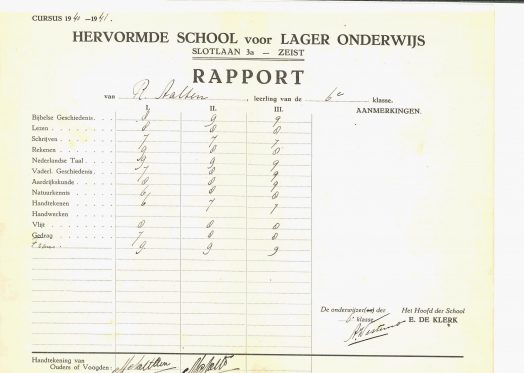 CURSUS 1940 —1941.
HERVORMDE SCHOOL voor LAGER ONDERWIJS
SLOTLAAN 3a — ZEIST
RAPPORT
van R. Aalten, leerling van de 6e klasse.
I. II. III. AANMERKINGEN.
Bijbelse Geschiedenis. 8 9 9
Lezen 8 8 8
Schrijven 7 7 7
Rekenen 9 8 8
Nederlandse Taal 9 9 9
Vaderl. Geschiedenis 7 8 9
Aardrijkskunde 8 8 9
Natuurkennis 6 8 8
Handtekenen 6 7 7
Handwerken
Vlijt 8 8 8
Gedrag 7 8 8
9 9 9
De onderwijzer(es) der Het Hoofd der School
6e klasse E. DE KLERK
Handtekening van
Ouders of Voogden: